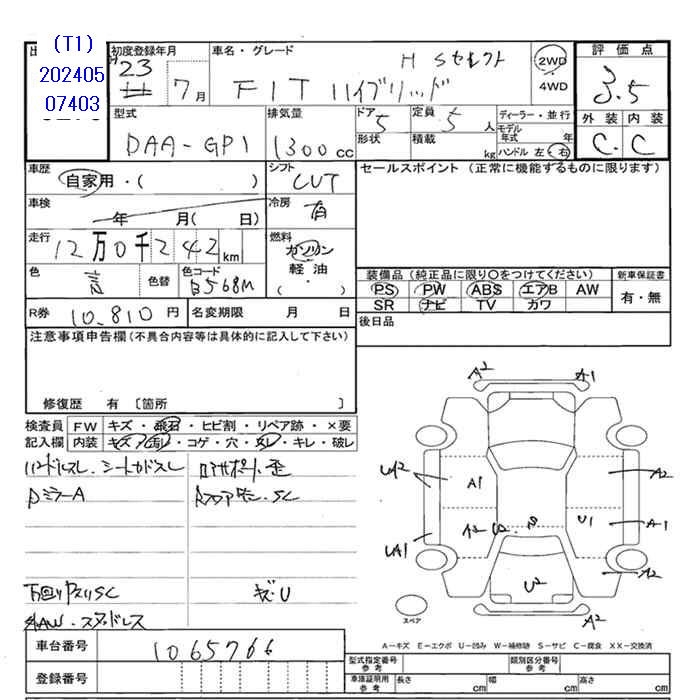 (T1)
202405
07403
初度登録年月
H 23
7 月
車名・グレード
H Sセレクト
FIT ハイブリッド
2WD
4WD
評価点
3.5
外装 内装
C C
型式
DAA-GP1
排気量
1300 cc
ドア
5
形状
定員
5 人
積載
kg
ディーラー・並行
モデル年式 年
ハンドル 左・右
車歴
自家用・( )
シフト
CVT
セールスポイント (正常に機能するものに限ります)
車検
年 月( 日)
冷房
有
走行
12万0千242 km
燃料
ガソリン
軽油
・
( )
色
色替
色コード
B568M
装備品(純正品に限り〇をつけてください)
新車保証書
PS PW ABS エアB AW
SR ナビ TV カワ
有・無
R券
10,810 円
名変期限 月 日
後日品
注意事項申告欄(不具合内容等は具体的に記入して下さい)
修復歴 有 〔箇所 〕
検査員記入欄
FW キズ・飛石・ヒビ割・リペア跡・×要
内装 キズ・汚れ・コゲ・穴・スレ・キレ・破レ
ハンドルスレ・シートカドスレ
DミラーA
キズ・U
A2 A1
A1 A2
U1 A1
A2
U2
A2
スペア
A-キズ E-エクボ U-凹み W-補修跡 S-サビ C-腐食 XX-交換済
車台番号
1065766
登録番号
型式指定番号 参考
類別区分番号 参考
車庫証明用 参考
長さ cm
幅 cm
高さ cm